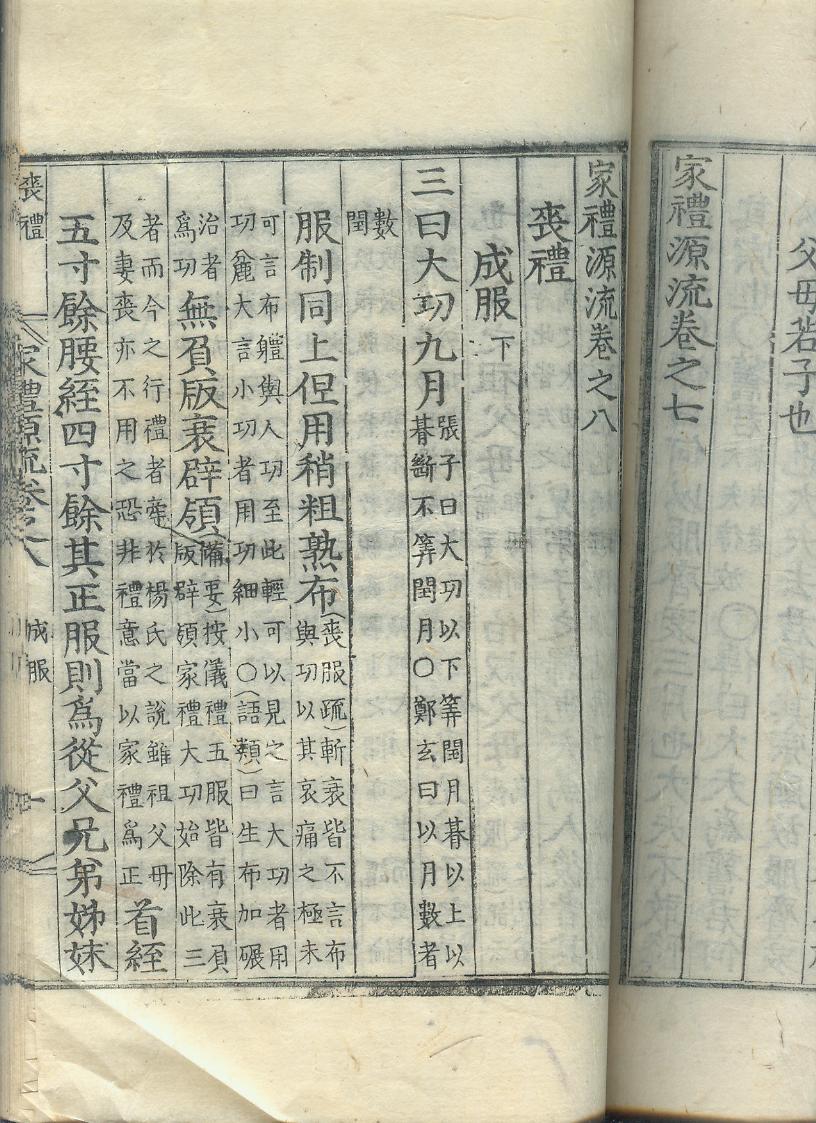 父母若子也
家禮源流卷之七
家禮源流卷之八
喪禮
成服下
三曰大功九月張子曰大功以下筭閏月朞以上以
朞斷不筭閏月○鄭玄曰以月數者
數
閏
服制同上但用稍粗熟布(喪服疏)斬衰皆不言布
與功以其哀痛之極未
可言布軆與人功至此輕可以見之言大功者用
功麄大言小功者用功細小○(語類)曰生布加碾
治者
爲功
無負版衰辟領(備要)按儀禮五服皆有衰負
版辟領家禮大功始除此三
者而今之行禮者牽於楊氏之說雖祖父母
及妻喪亦不用之恐非禮意當以家禮爲正
首絰
五寸餘腰絰四寸餘其正服則爲從父兄弟姊妹
喪禮 家禮源流卷之八 成服 一